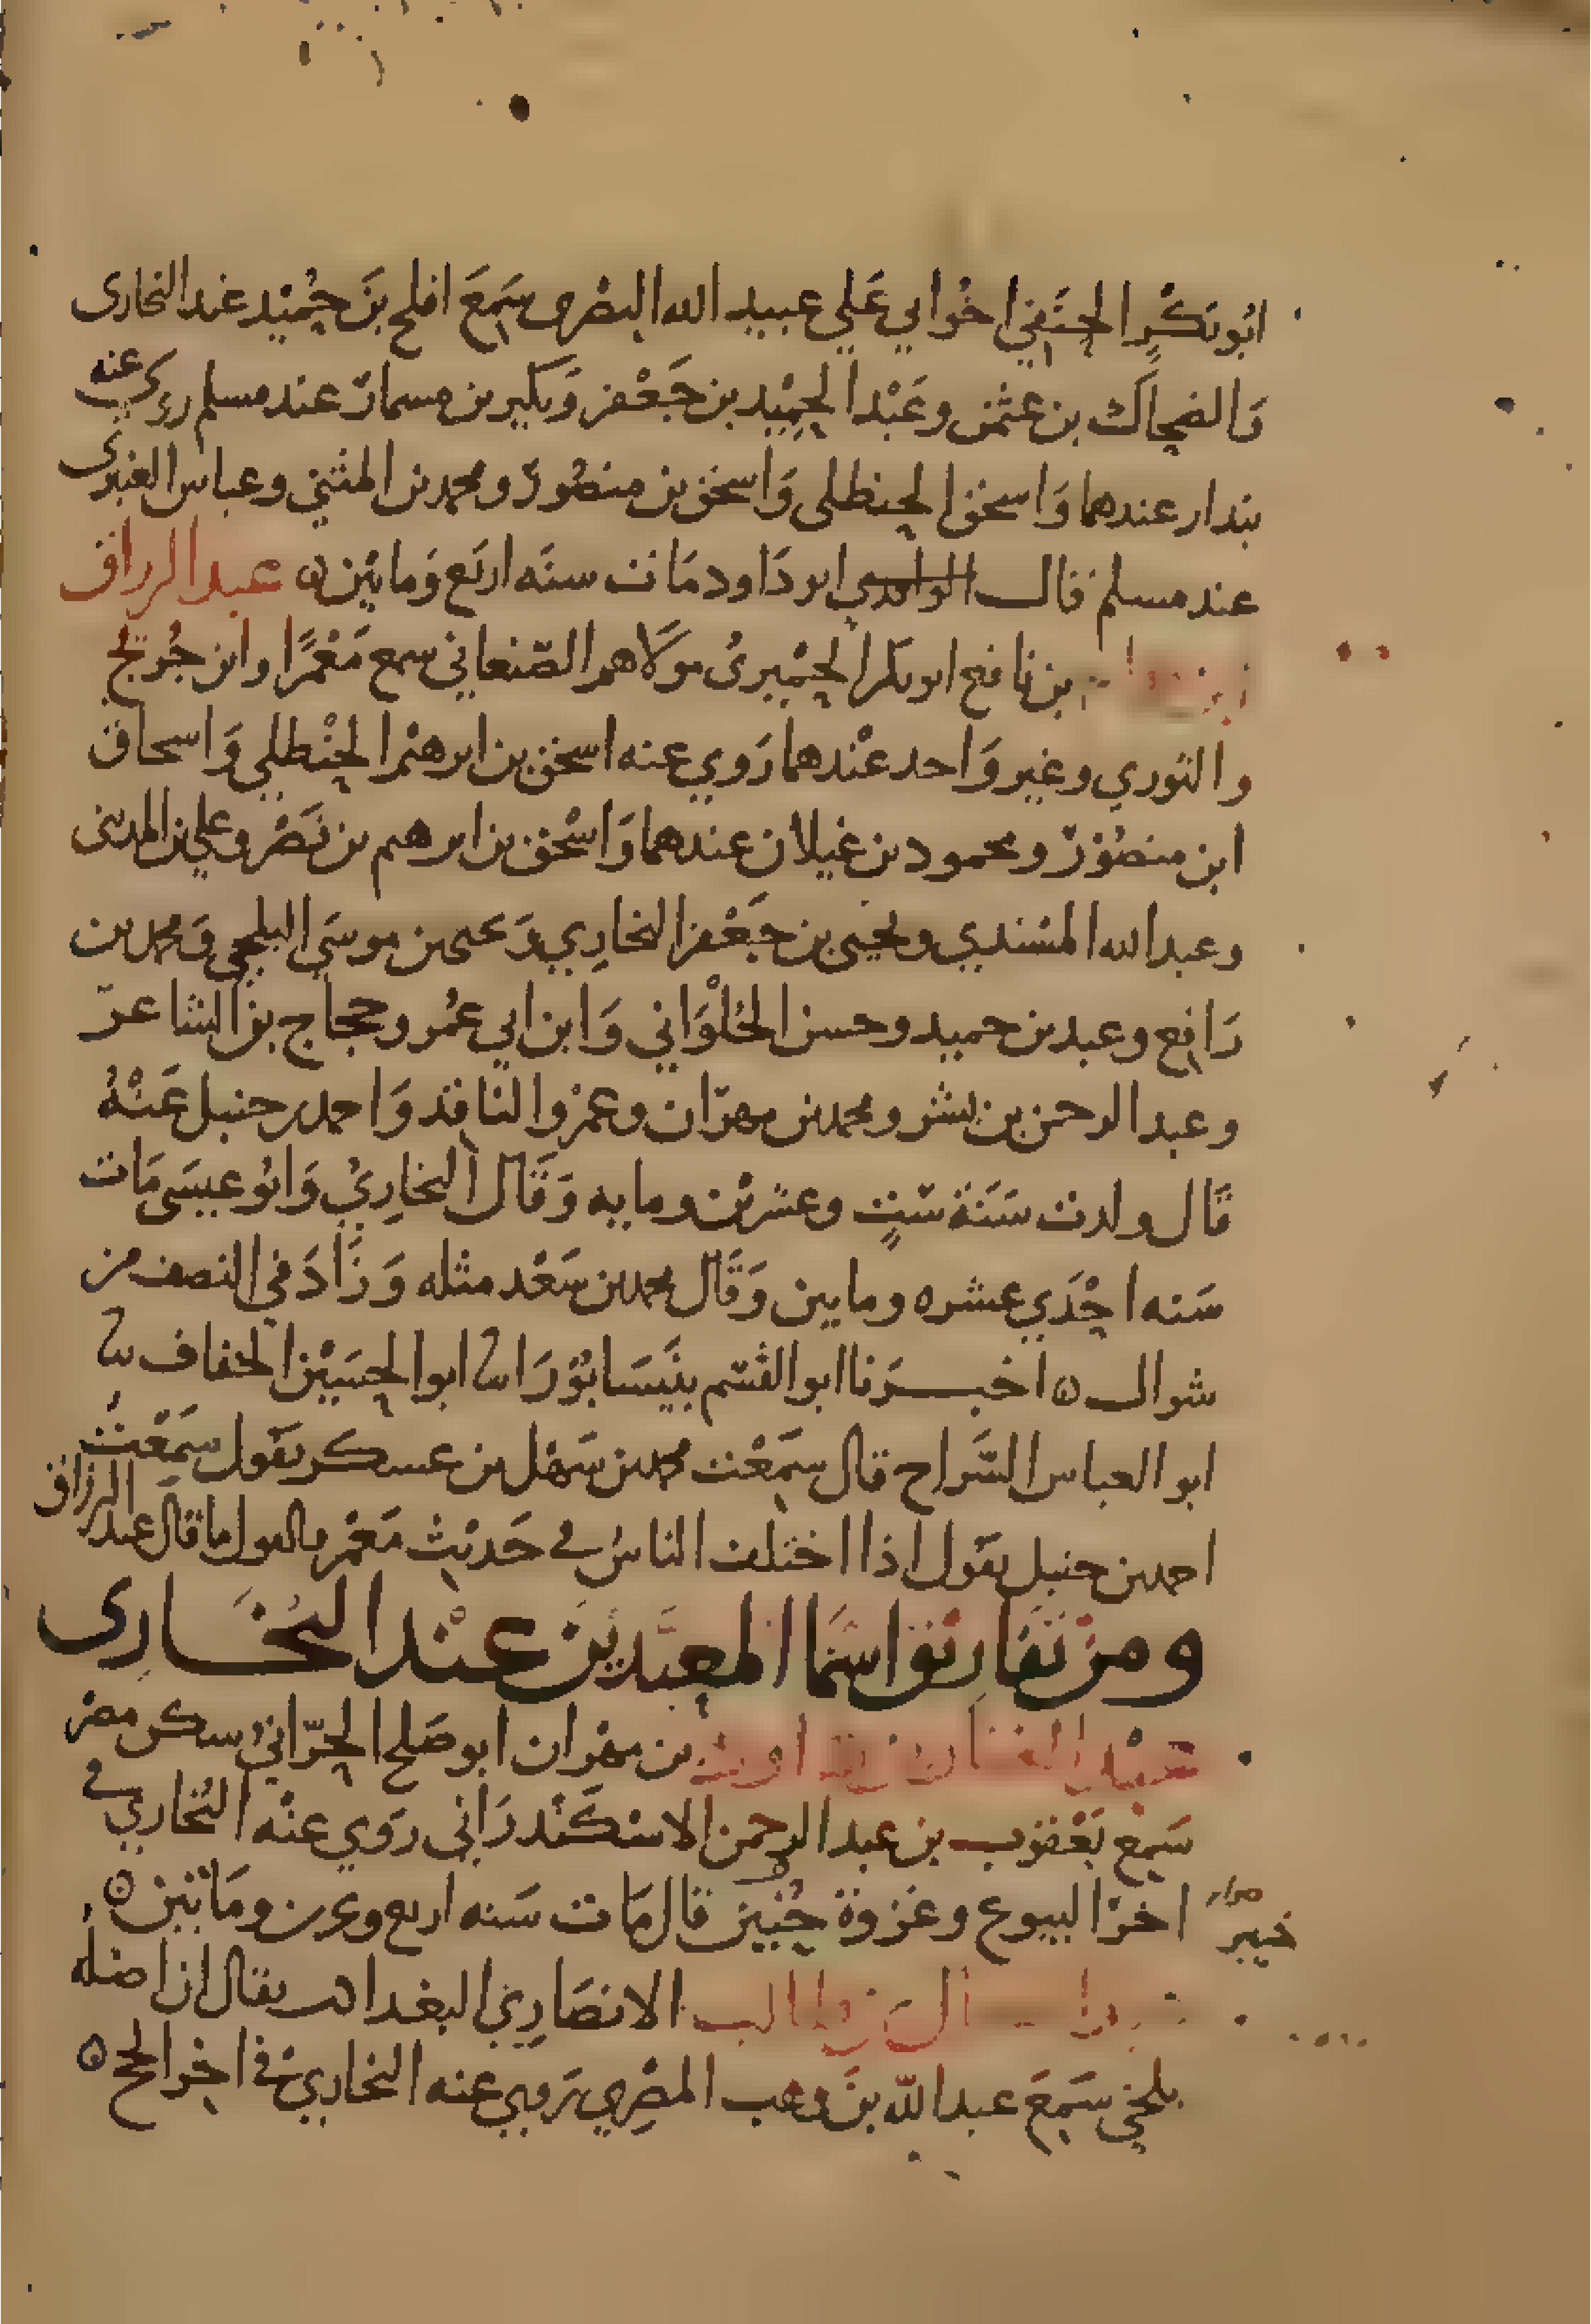 ابُو بَكْرٍ الحَنَفي اخُو ابي عَلي عبيد الله البصْرى سَمِعَ افلح بنَ حُمَيْد عند البخارى
وَالضحاك بن عثمن وعَبْد الحمِيْد بن جَعْفر وَبكير بن مسمار عند مسلم روى عنه
بندار عندهما وَاسحق الحنظلى وَاسحق بن منصُور ومحمد بن المثني وعباس العنبرى
عند مسلم قال الواقدي ابو دَاود مَات سنَه اربَع وَمايتين ٥ عبد الرزاق
بن نافع ابو بكر الحِمْيرىُ مَولَاهم الصّنعاني سمع مَعْمرًا وابن جُرَيج
والثوري وغير وَاحد عنْدهما رَوي عنه اسحق بن ابرهيْم الحنْظلي وَاسحاق
ابن منصُوْر ومحمود بن غيلان عندهما وَاسْحق بن ابرهيم بن نَصْر وعلي بن المديني
وعبد الله المسْنديي ويحيى بن جَعْفر البخارِي وَيحيى بن موسَي البلخي وَمحمد بن
رَافِع وعبد بن حميد وحسن الحُلْوَاني وَابن ابي عمُر وحجاج بن الشاعر
وعبد الرحمن بن بشر ومحمد بن مهرَان وعمرو الناقد وَاحمد بن حنبل عَنْهُ
قَال ولدت سَنَة سَتٍ وعشريْن ومايه وَقَال البخارِيُ وَابُو عيسَى مَات
سَنه احْدَي عشره ومايتين وَقَال محمد بن سَعْد مثله وَزَادَ في النصف من
شوال ٥ اخبرَنا ابو القسم بنَيسَابُوْر انا ابو الحسَيْن الخفاف نا
ابو العباس السَّراج قال سمِعْت محمد بن سَهْل بن عسكر يقول سَمِعْتُ
احمد بن حنبل يقول اذا اختلف الناسُ في حَديْث مَعْمر فالقول ما قال عبد الرزاق
ومن تفاريق اسمَا المعبَّديْنَ عنْد البُخَارِى
عبد الغفار بن داود بن مهْران ابو صَلح الحرّاني سكن مصْر
سَمِعْ يَعْقوب بن عبد الرحمن الاسْكَنْدرَاني رَوي عنْه البُخاري في
اخر البيوع وغَزوة حُنَيْن قال مَات سَنه اربع وعرين ومَائتين ٥
خيبر
طالب الانصَارِيّ البغدادي يقال ان اصْلهُ
بلخي سَمِعَ عبد الله بنَ وهب المصْري يَروي عنه البخاري في اخِر الحج ٥